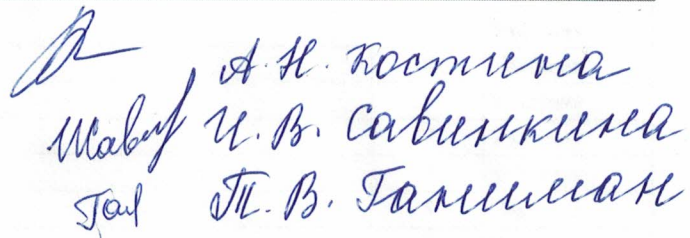 А.Н. Костина
И.В. Савинкина
Т.В. Ганиман